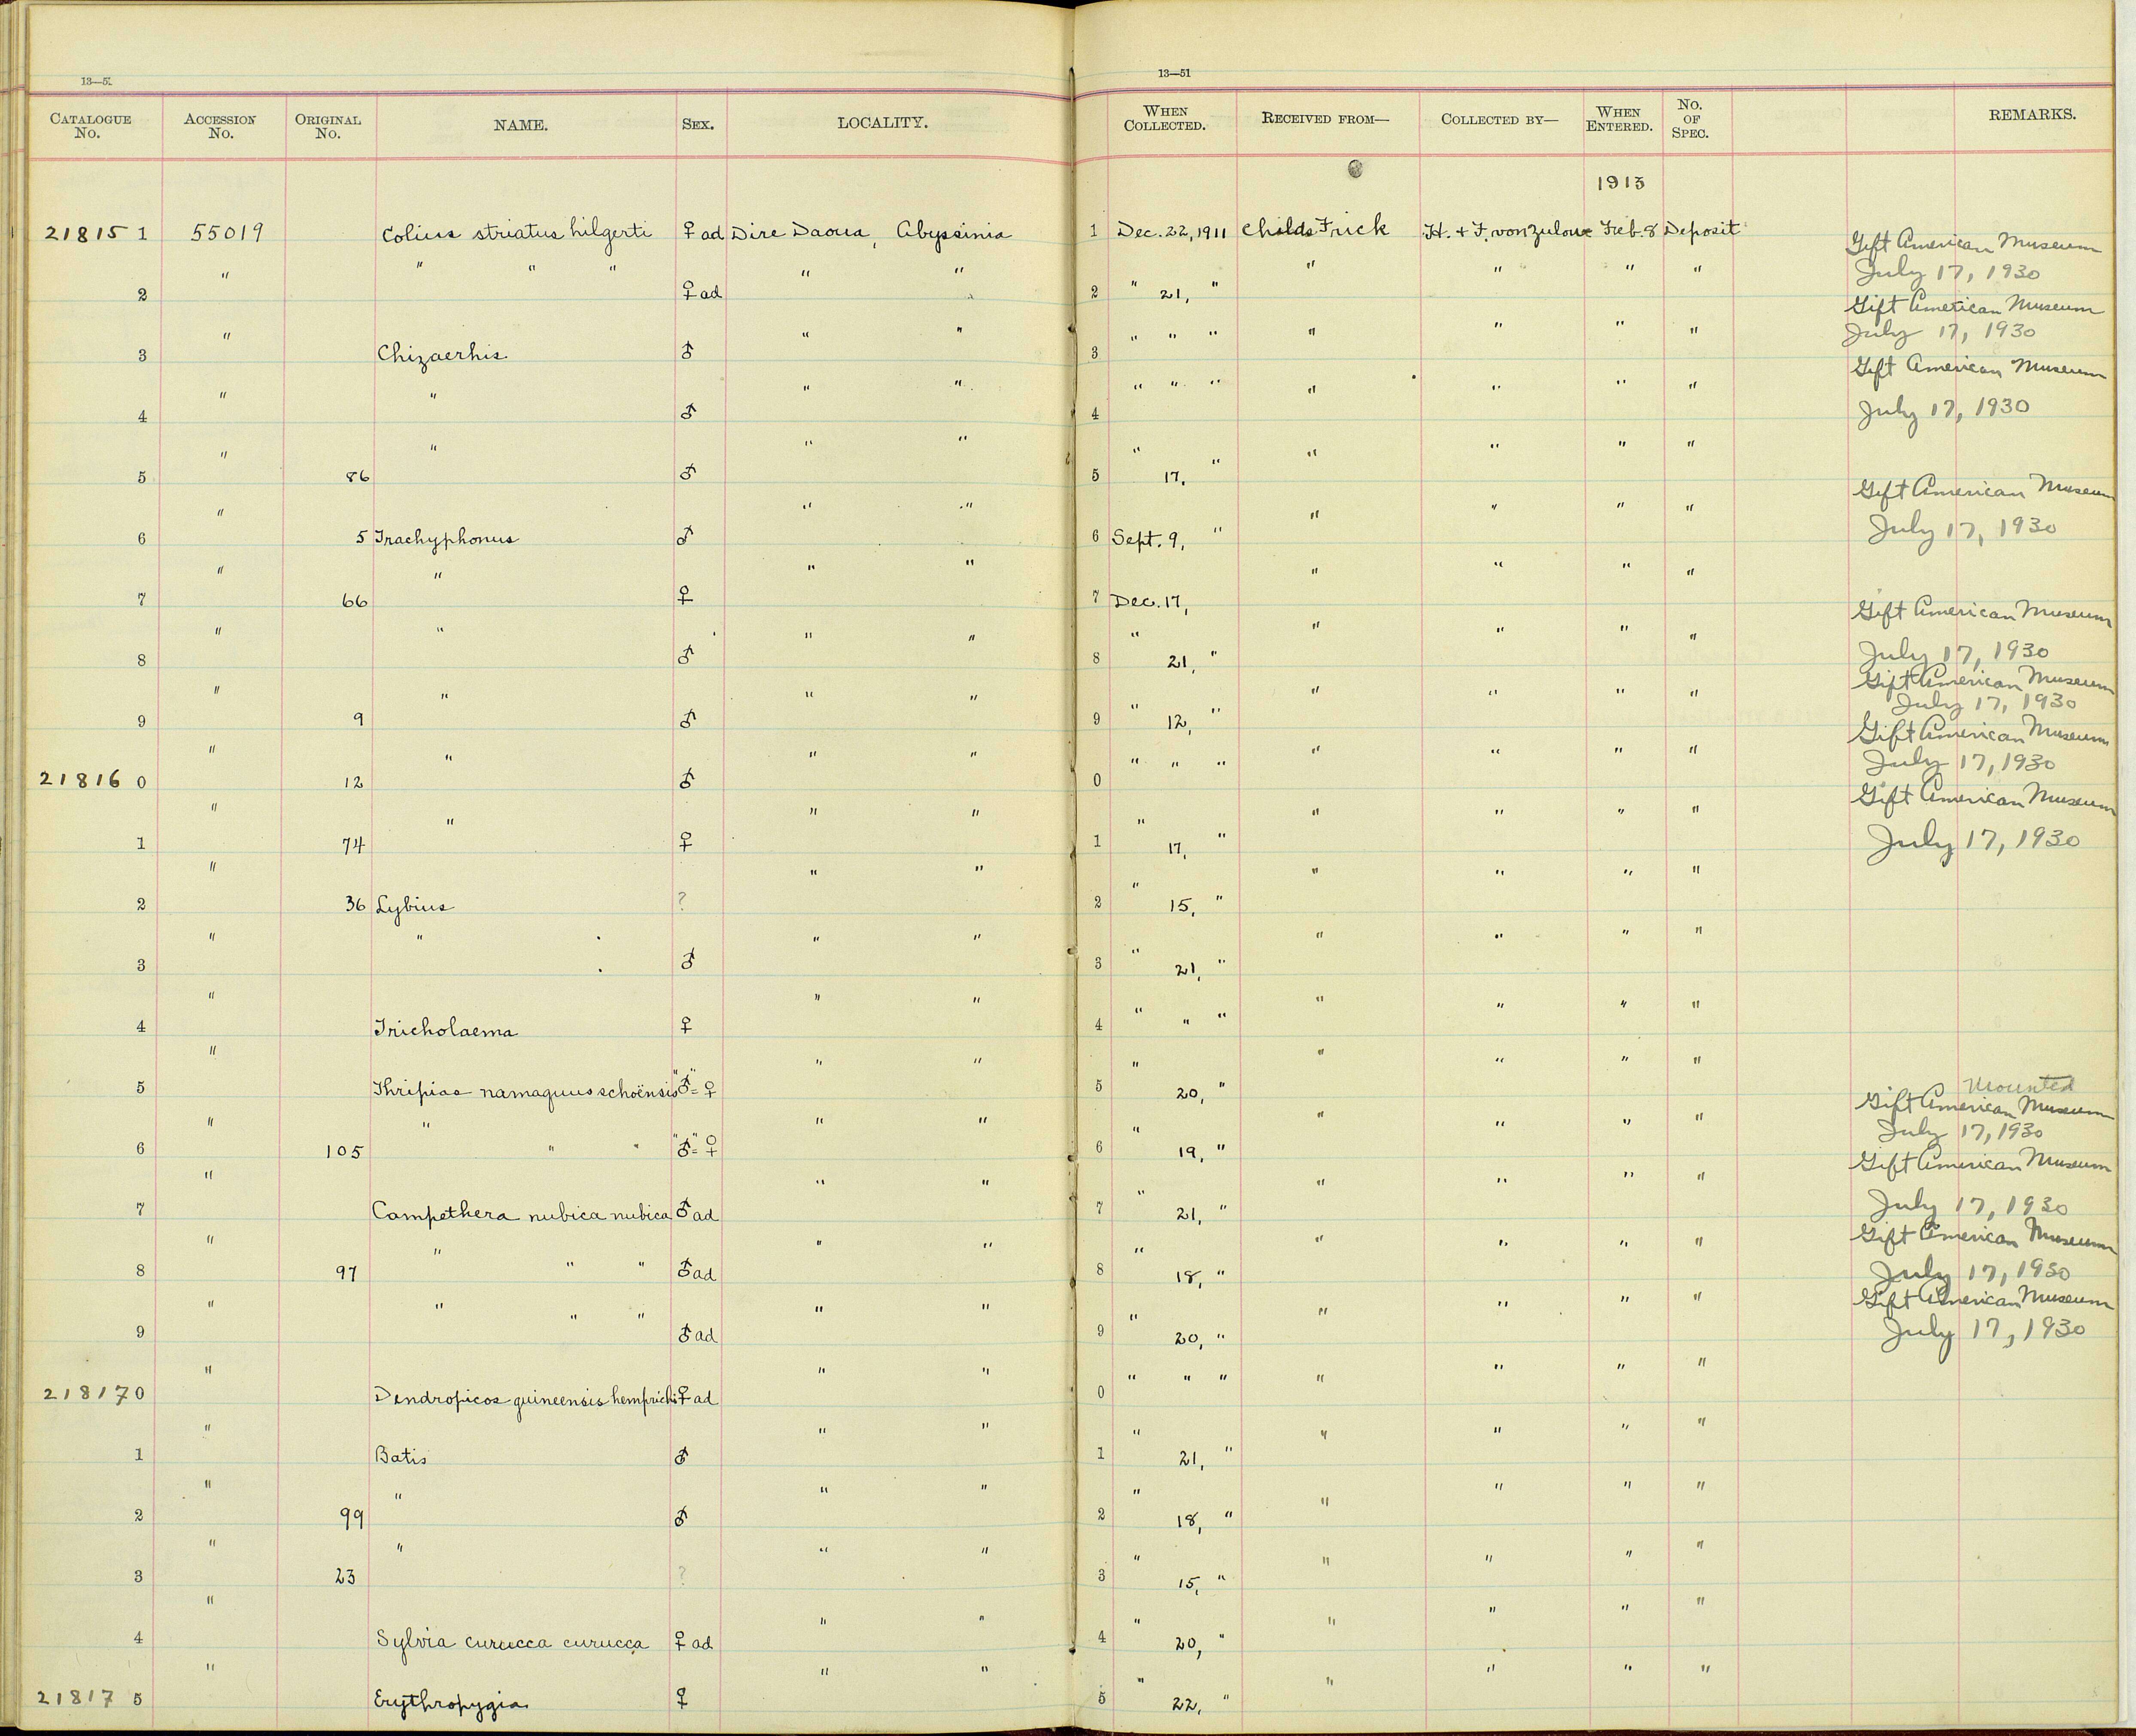 13—51 13—51
CATALOGUE No. ACCESSION No. ORIGINAL No. NAME. SEX. LOCALITY. WHEN COLLECTED. RECEIVED FROM— COLLECTED BY— WHEN ENTERED. No. OF SPEC. REMARKS.
1913
21815 1 55019 Colius striatus hilgerti ♀ ad Dire Daoua, Abyssinia 1 Dec. 22, 1911 Childs Frick H. + F. von Zulow Feb. 8 Deposit Gift American Museum July 17, 1930
2 " " " " ♀ ad " " 2 " 21, " " " " " Gift American Museum July 17, 1930
3 " Chizaerhis ♂ " " 3 " " " " " " " Gift American Museum July 17, 1930
4 " " ♂ " " 4 " " " " " " "
5 " 86 " ♂ " " 5 " 17, " " " " " Gift American Museum July 17, 1930
6 " 5 Trachyphonus ♂ " " 6 Sept. 9, " " " " "
7 " 66 " ♀ " " 7 Dec. 17, " " " " Gift American Museum July 17, 1930
8 " " ♂ " " 8 " 21, " " " " " Gift American Museum July 17, 1930
9 " 9 " ♂ " " 9 " 12, " " " " " Gift American Museum July 17, 1930
21816 0 " 12 " ♂ " " 0 " " " " " " " Gift American Museum July 17, 1930
1 " 74 " ♀ " " 1 " 17, " " " " "
2 " 36 Lybius ? " " 2 " 15, " " " " "
3 " " ♂ " " 3 " 21, " " " " "
4 " Tricholaema ♀ " " 4 " " " " " " "
5 " Thripias namaquus schoënsis "♂"= ♀ " " 5 " 20, " " " " " Mounted Gift American Museum July 17, 1930
6 " 105 " " " "♂"= ♀ " " 6 " 19, " " " " " Gift American Museum July 17, 1930
7 " Campethera nubica nubica ♂ ad " " 7 " 21, " " " " " Gift American Museum July 17, 1930
8 " 97 " " " ♂ ad " " 8 " 18, " " " " " Gift American Museum July 17, 1930
9 " " " " ♂ ad " " 9 " 20, " " " " "
21817 0 " Dendropicos guineensis hemprichi ♀ ad " " 0 " " " " " " "
1 " Batis ♂ " " 1 " 21, " " " " "
2 " 99 " ♂ " " 2 " 18, " " " " "
3 " 23 " ? " " 3 " 15, " " " " "
4 " Sylvia curucca curucca ♀ ad " " 4 " 20, " " " " "
21817 5 " Erythropygia ♀ " " 5 " 22, " " " " "